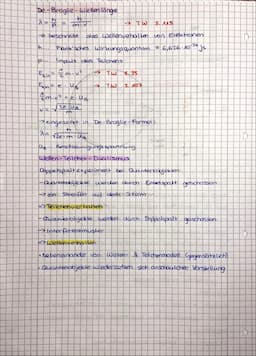 De-Broglie-Wellenlänge
λ = h/p = h/(m·v) → TW S.115
→ beschreibt das Wellenverhalten von Elektronen
h: Planck'sches Wirkungsquantum = 6,626·10⁻³⁴ Js
p: Impuls des Teilchens
Ekin = ½ m·v² → TW S.95
Ekin = e·UB → TW S.107
½ m·v² = e·UB
v = √(2e·UB/m)
→ eingesetzt in De-Broglie-Formel:
λ = h/√(2e·m·UB)
UB: Beschleunigungsspannung
Wellen-Teilchen-Dualismus
Doppelspaltexperiment bei Quantenobjekten
- Quantenobjekte werden durch Einzelspalt geschossen
→ ein Streifen auf dem Schirm
⇒ Teilchenverhalten
- Quantenobjekte werden durch Doppelspalt geschossen
→ Interferenzmuster
⇒ Wellenverhalten
- Nebeneinander von Wellen- & Teilchenmodell (gegensätzlich)
- Quantenobjekte widersetzen sich anschaulicher Vorstellung